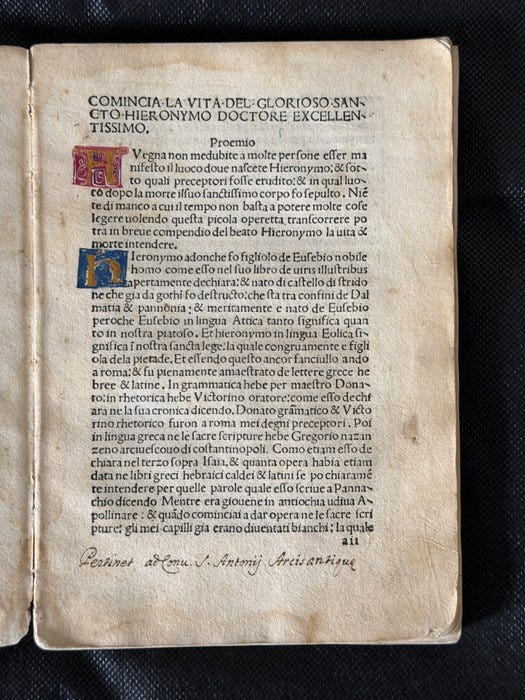 COMINCIA·LA VITA·DEL·GLORIOSO·SAN-
CTO·HIERONYMO DOCTORE EXCELLEN-
TISSIMO.
Proemio
AVegna non medubite a molte persone esser ma
nifesto il luoco doue nascete Hieronymo: & sot-
to quali preceptori fosse erudito: & in qual luo-
co dopo la morte ilsuo sanctissimo corpo fo sepulto. Niẽ
te di manco a cui il tempo non basta a potere molte cose
legere uolendo questa picola operetta transcorrere po
tra in breue compendio del beato Hieronymo la uita &
morte intendere.
HIeronymo adonche fo figliolo de Eusebio nobile
homo come esso nel suo libro de uiris illustribus
apertamente dechiara: & nato di castello di strido
ne che gia da gothi fo destructo: che sta tra confini de Dal
matia & pannonia: & meritamente e nato de Eusebio
peroche Eusebio in lingua Attica tanto significa quan
to in nostra piatoso. Et hieronymo in lingua Eolica si-
gnifica ĩ nostra sancta lege: la quale congruamente e figli
ola dela pietade. Et essendo questo ancor fanciullo ando
a roma: & fu pienamente amaestrato de lettere grece he
bree & latine. In grammatica hebe per maestro Dona-
to: in rhetorica hebe Victorino oratore: come esso dechi
ara ne la sua cronica dicendo. Donato grãmatico & Victo
rino rhetorico furon a roma mei degni preceptori. Poi
in lingua greca ne le sacre scripture hebe Gregorio nazan
zeno arciuescouo di costantinopoli. Como etiam esso de
chiara nel terzo sopra Isaia. & quanta opera habia etiam
data ne libri greci hebraici caldei & latini se po chiaramẽ
te intendere per quelle parole quale esso scriue a Panna-
chio dicendo Mentre era giouene in antiochia udiua A-
pollinare: & quãdo cominciai a dar opera ne le sacre scri
pture: gli mei capilli gia erano diuentati bianchi: la quale
aii
Pertinet ad Conu. S. Antonij Arcis antiquę